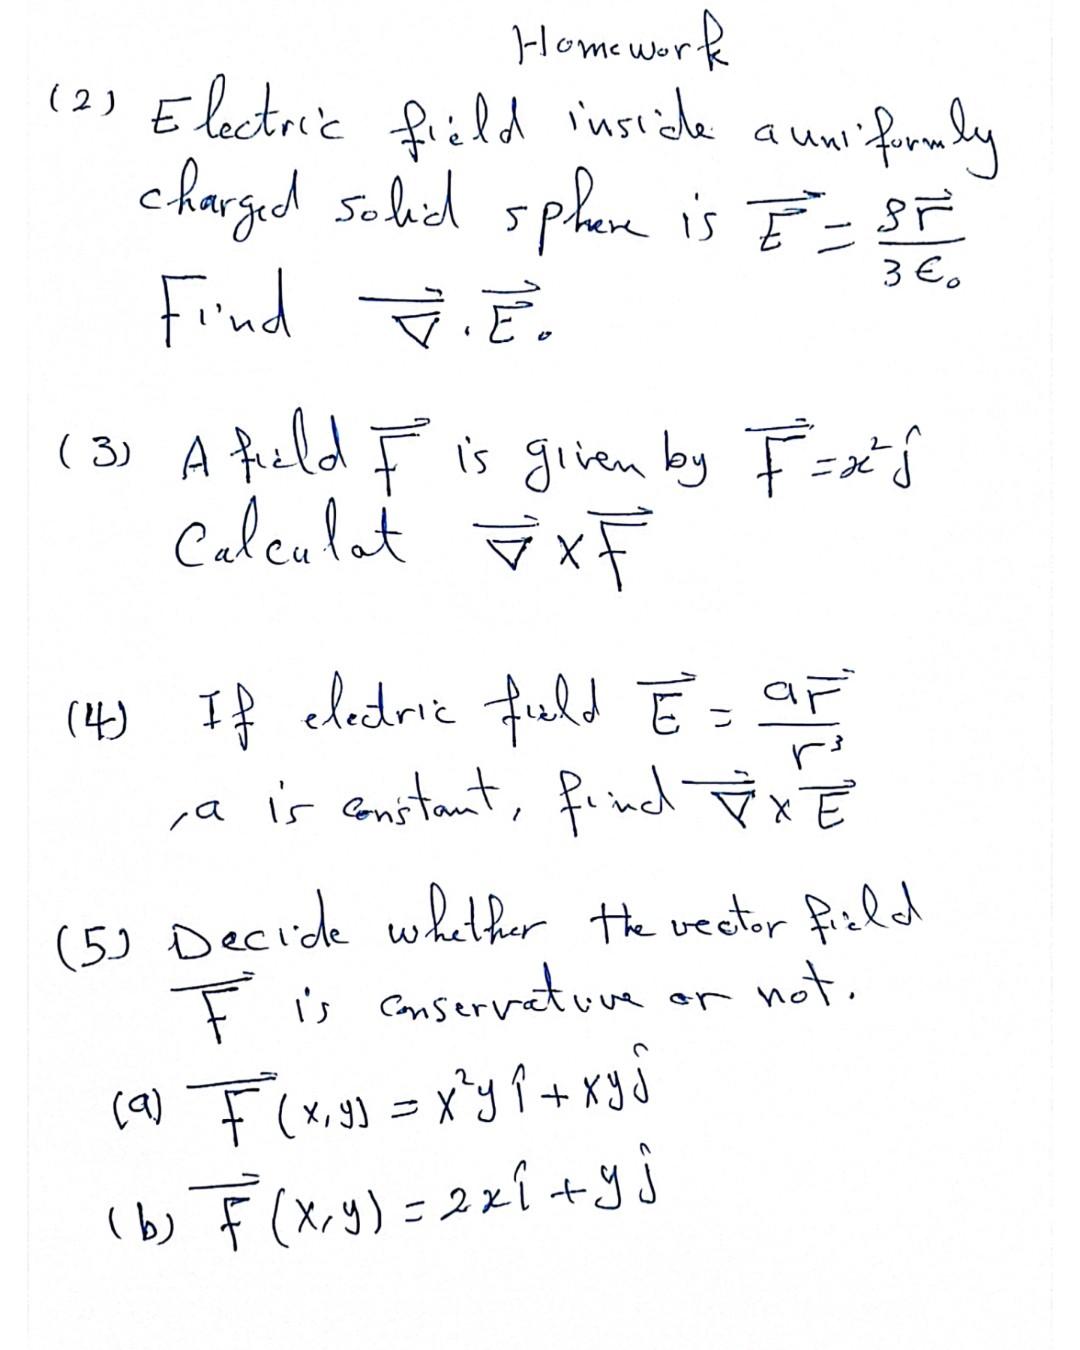 Homework
(2) Electric field inside a uniformly
charged solid sphere is E⃗ = ρr⃗ / 3ϵ₀
Find ∇⃗ . E⃗ .
(3) A field F⃗ is given by F⃗ = x² ĵ
Calculat ∇⃗ × F⃗
(4) If electric field E⃗ = ar⃗ / r³
, a is constant, find ∇⃗ × E⃗
(5) Decide whether the vector field
F⃗ is conservative or not.
(a) F⃗ (x,y) = x²y î + xy ĵ
(b) F⃗ (x,y) = 2x î + y ĵ